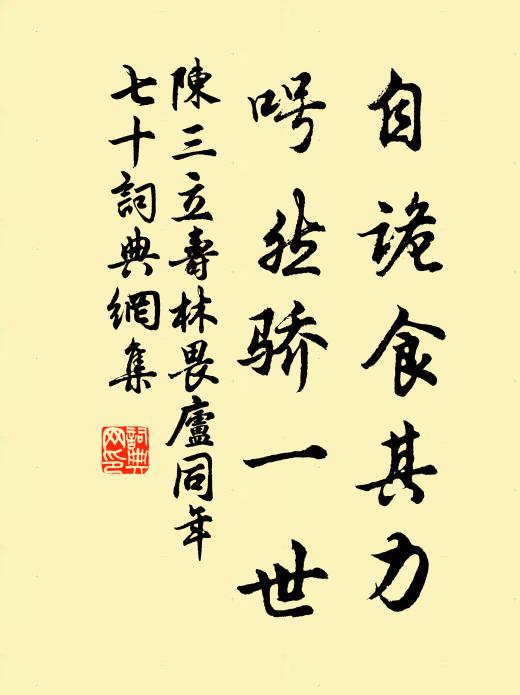 自诡食其力
呺然骄一世
陳三立壽林畏廬同年
七十詞典網集
詞典網印